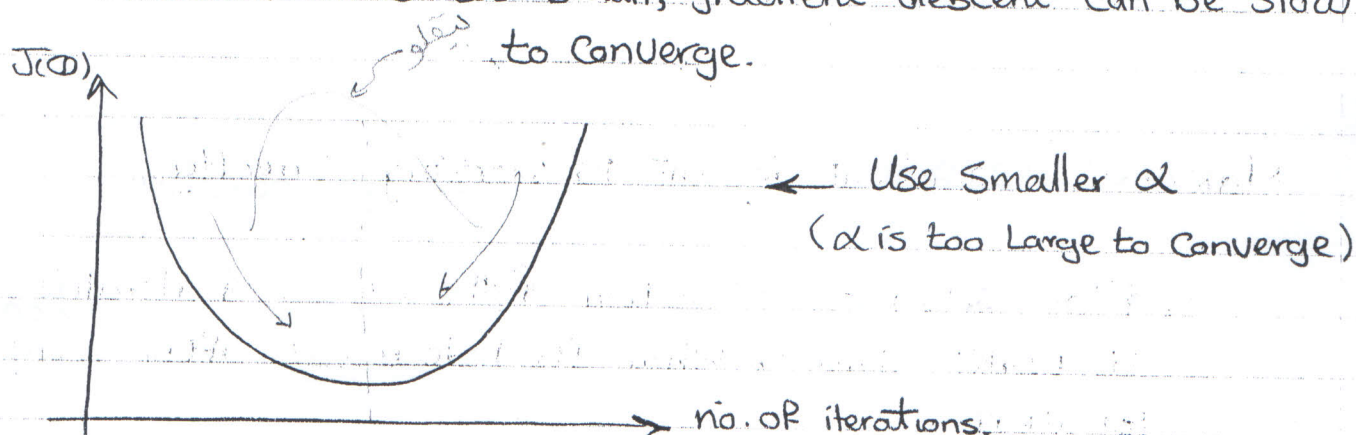 gradient descent can be slow
to Converge.
J(Θ)
← Use Smaller α
(α is too Large to Converge)
no. of iterations.